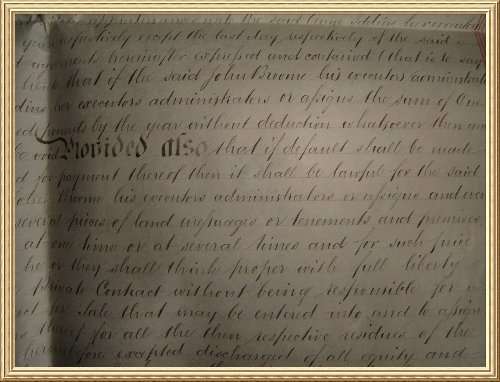 years respectively except the last day respectively of the said
agreements hereinafter expressed and contained (that is to say
that if the said John Broome his executors administrators
his executors administrators or assigns the sum of One
pounds by the year without deduction whatsoever then and
be void Provided also that if default shall be made
for payment thereof then it shall be lawful for the said
Broome his executors administrators or assigns and even
several pieces of land messuages or tenements and premises
at one time or at several times and for such price
he or they shall think proper with full liberty
Private Contract without being responsible for
for Sale that may be entered into and to assign
thereof for all the then respective residues of the
excepted discharged of all equity and